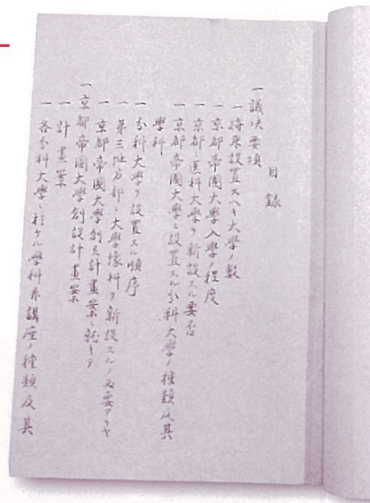 目録
一議決要項
一将来設置スヘキ大學ノ數
一京都帝國大學入學ノ程度
一京都ニ医科大學ヲ新設スル要否
一京都帝國大學ニ設置スル分科大學ノ種類及其
學科
一分科大學ヲ設置スル順序
一第三地方部ニ大學豫科ヲ新設スルノ必要アリヤ
一京都帝國大學創立計畫案ニ就キテ
一京都帝國大學創設計畫案
一計畫案
一各分科大學ニ於ケル學科并講座ノ種類及其